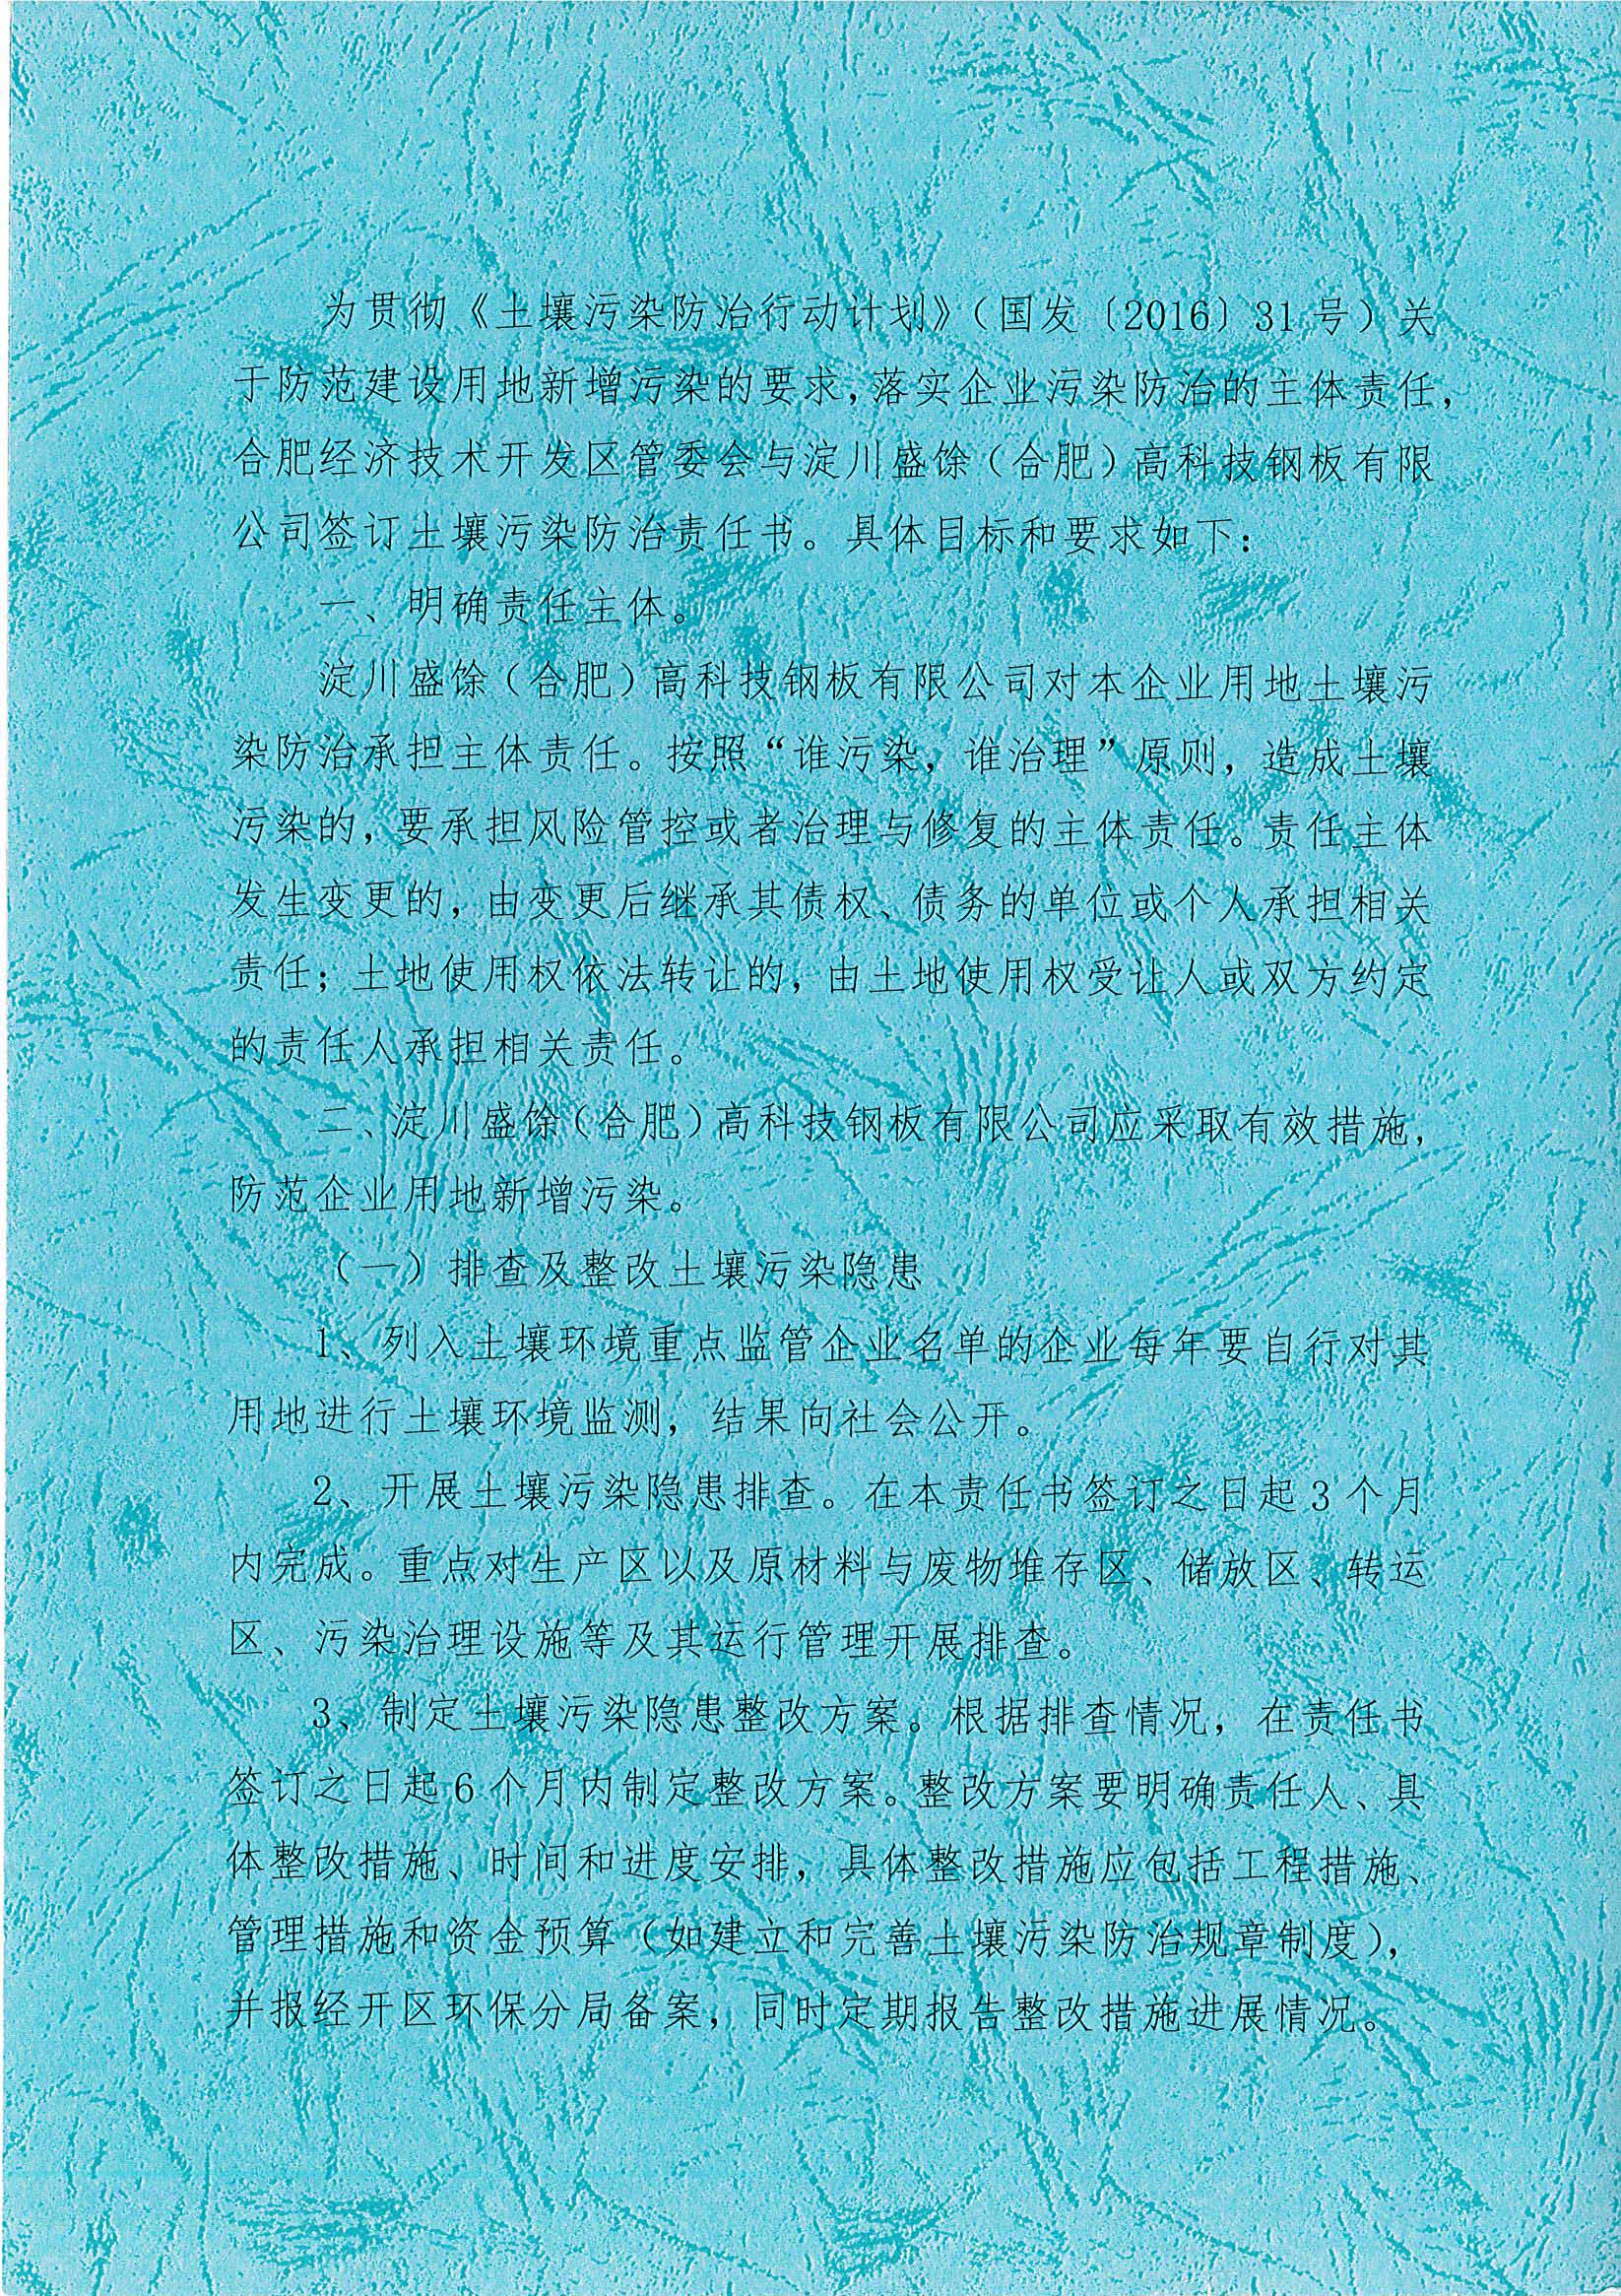 为贯彻《土壤污染防治行动计划》（国发〔2016〕31号）关
于防范建设用地新增污染的要求，落实企业污染防治的主体责任，
合肥经济技术开发区管委会与淀川盛馀（合肥）高科技钢板有限
公司签订土壤污染防治责任书。具体目标和要求如下：
一、明确责任主体。
淀川盛馀（合肥）高科技钢板有限公司对本企业用地土壤污
染防治承担主体责任。按照“谁污染，谁治理”原则，造成土壤
污染的，要承担风险管控或者治理与修复的主体责任。责任主体
发生变更的，由变更后继承其债权、债务的单位或个人承担相关
责任；土地使用权依法转让的，由土地使用权受让人或双方约定
的责任人承担相关责任。
二、淀川盛馀（合肥）高科技钢板有限公司应采取有效措施，
防范企业用地新增污染。
（一）排查及整改土壤污染隐患
1、列入土壤环境重点监管企业名单的企业每年要自行对其
用地进行土壤环境监测，结果向社会公开。
2、开展土壤污染隐患排查。在本责任书签订之日起3个月
内完成。重点对生产区以及原材料与废物堆存区、储放区、转运
区、污染治理设施等及其运行管理开展排查。
3、制定土壤污染隐患整改方案。根据排查情况，在责任书
签订之日起6个月内制定整改方案。整改方案要明确责任人、具
体整改措施、时间和进度安排，具体整改措施应包括工程措施、
管理措施和资金预算（如建立和完善土壤污染防治规章制度），
并报经开区环保分局备案，同时定期报告整改措施进展情况。